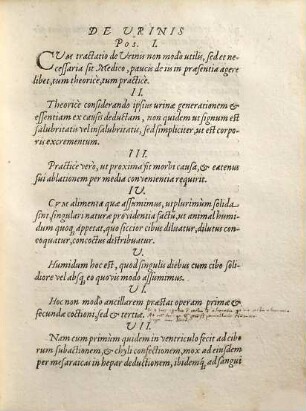 DE VRINIS
Pos. I.
CVm tractatio de Vrinis non modo utilis, sed et ne-
cessaria sit Medico, paucis de iis in præsentia agere
libet, tum theoricè, tum practicè.
II.
Theoricè considerando ipsius urinæ generationem &
essentiam ex causis deductam, non quidem ut signum est
salubritatis vel insalubritatis, sed simpliciter, ut est corpo-
ris excrementum.
III.
Practicè verò, ut proxima sit morbi causa, & eatenus
sui ablationem per media convenientia requirit.
IV.
CVM alimenta quæ assumimus, ut plurimùm solida
sint, singulari naturæ providentia factũ, ut animal humi-
dum quoq; appetat, quo siccior cibus diluatur, dilutus con-
coquatur, concoctus distribuatur.
V.
Humidum hoc est, quod singulis diebus cum cibo soli-
diore vel absq; eo quovis modo assumimus.
VI.
Hoc non modo ancillarem præstat operam primæ &
secundæ coctioni, sed & tertiæ.
VII.
Nam cum primùm quidem in ventriculo fecit ad cibo-
rum subactionem, & chyli confectionem, mox ad eiusdem
per mesaraicas in hepar deductionem, ibidemq; ad sangui